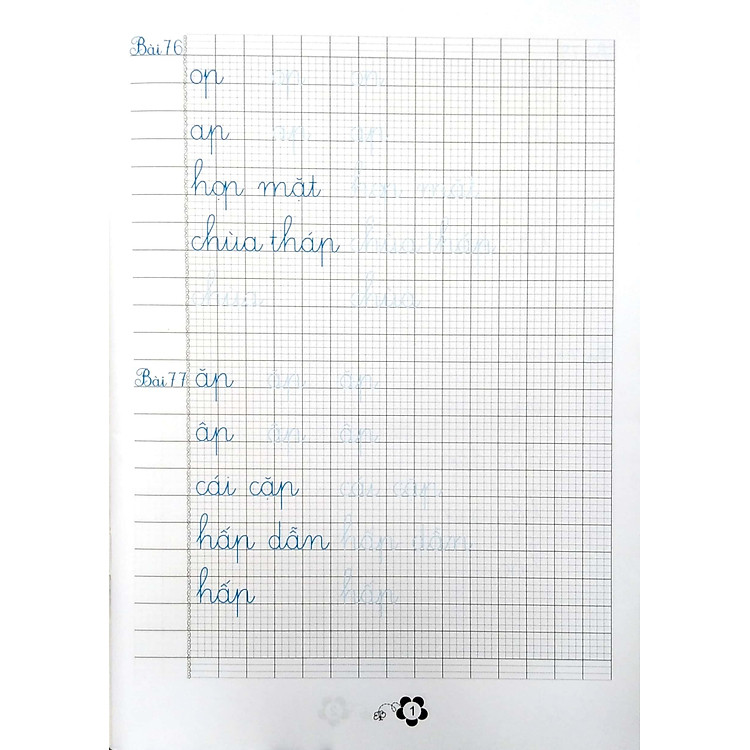 Bài 76
op op op
ap ap ap
họp mặt họp mặt
chùa tháp chùa tháp
chùa chùa
Bài 77 ăp ăp ăp
âp âp âp
cái cặp cái cặp
hấp dẫn hấp dẫn
hấp hấp
1